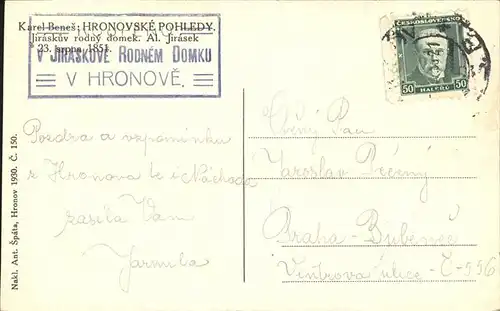 Karel Beneš: HRONOVSKÉ POHLEDY.
Jiráskův rodný domek. Al. Jirásek
* 23. srpna 1851.
V JIRÁSKOVĚ RODNÉM DOMKU
V HRONOVĚ.
Pozdra a vzpomínku
z Hronova te i Náchoda
zasílá Vám
Jarmila
Nakl. Ant. Špáta, Hronov 1930. Č. 150.
ČESKOSLOVENSKO
50 HALÉŘŮ 50
Ctěný Pan
Jaroslav Pečený
Praha-Bubeneč
Vintrova ulice - Č-556